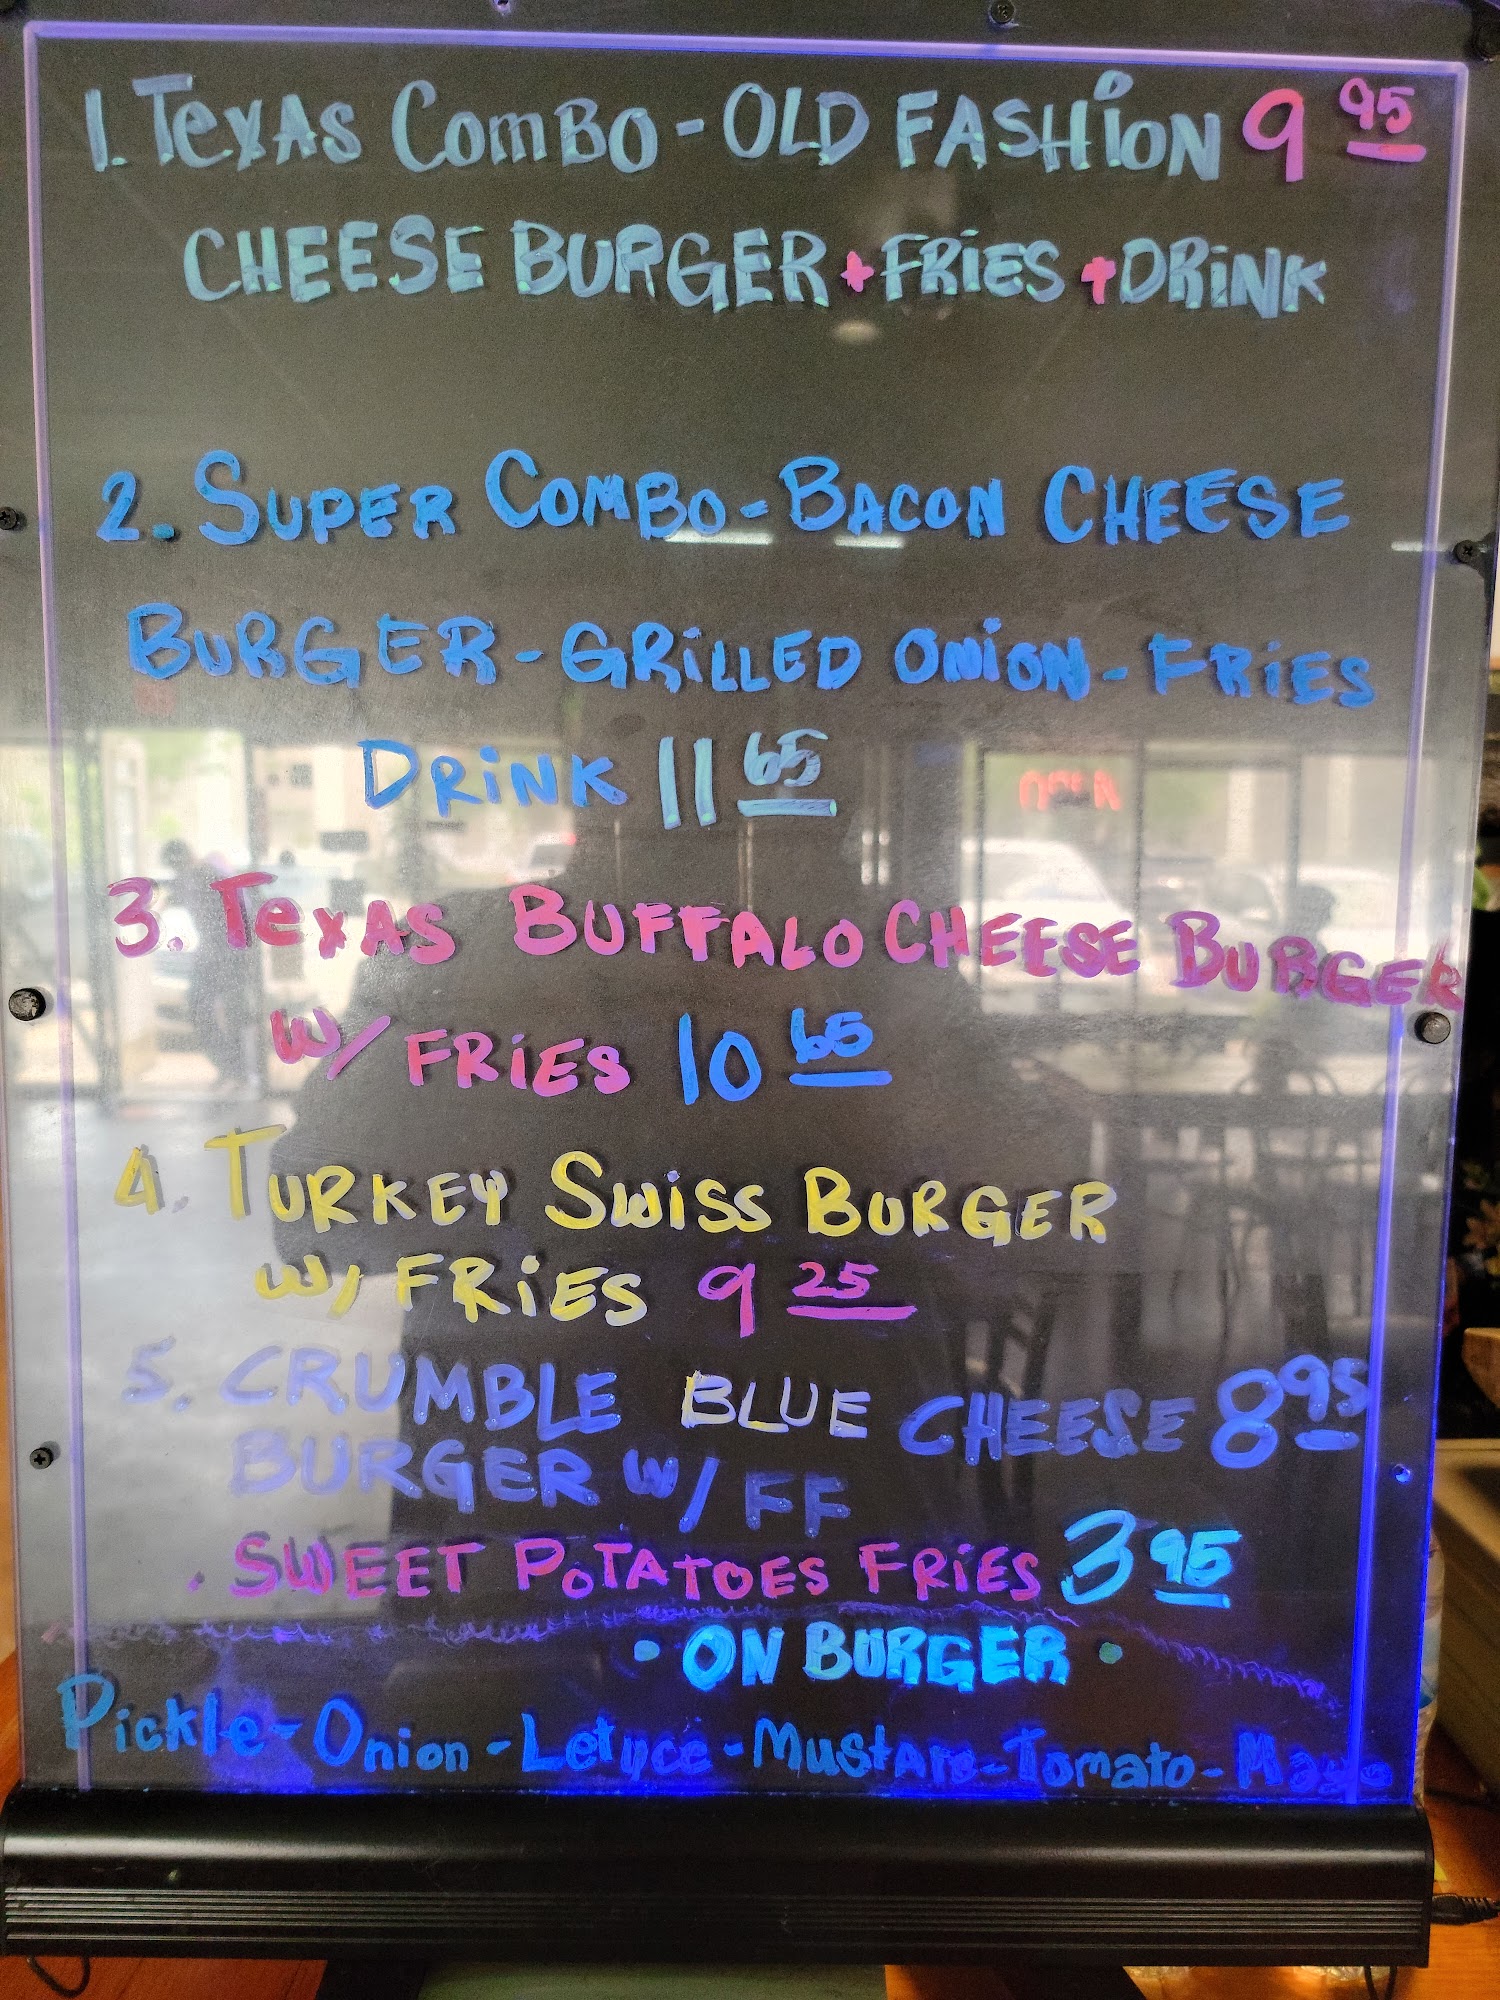 1. Texas Combo - OLD FASHION 9 95
CHEESE BURGER + FRIES + DRINK
2. SUPER COMBO - BACON CHEESE
BURGER - GRILLED ONION - FRIES
DRINK 11 65
3. Texas BUFFALO CHEESE BURGER
W/ FRIES 10 65
4. TURKEY SWISS BURGER
W/ FRIES 9 25
5. CRUMBLE BLUE CHEESE 8 95
BURGER W/ FF
. SWEET POTATOES FRIES 3 95
• ON BURGER •
Pickle - Onion - Letuce - Mustard - Tomato - Mayo
OPEN